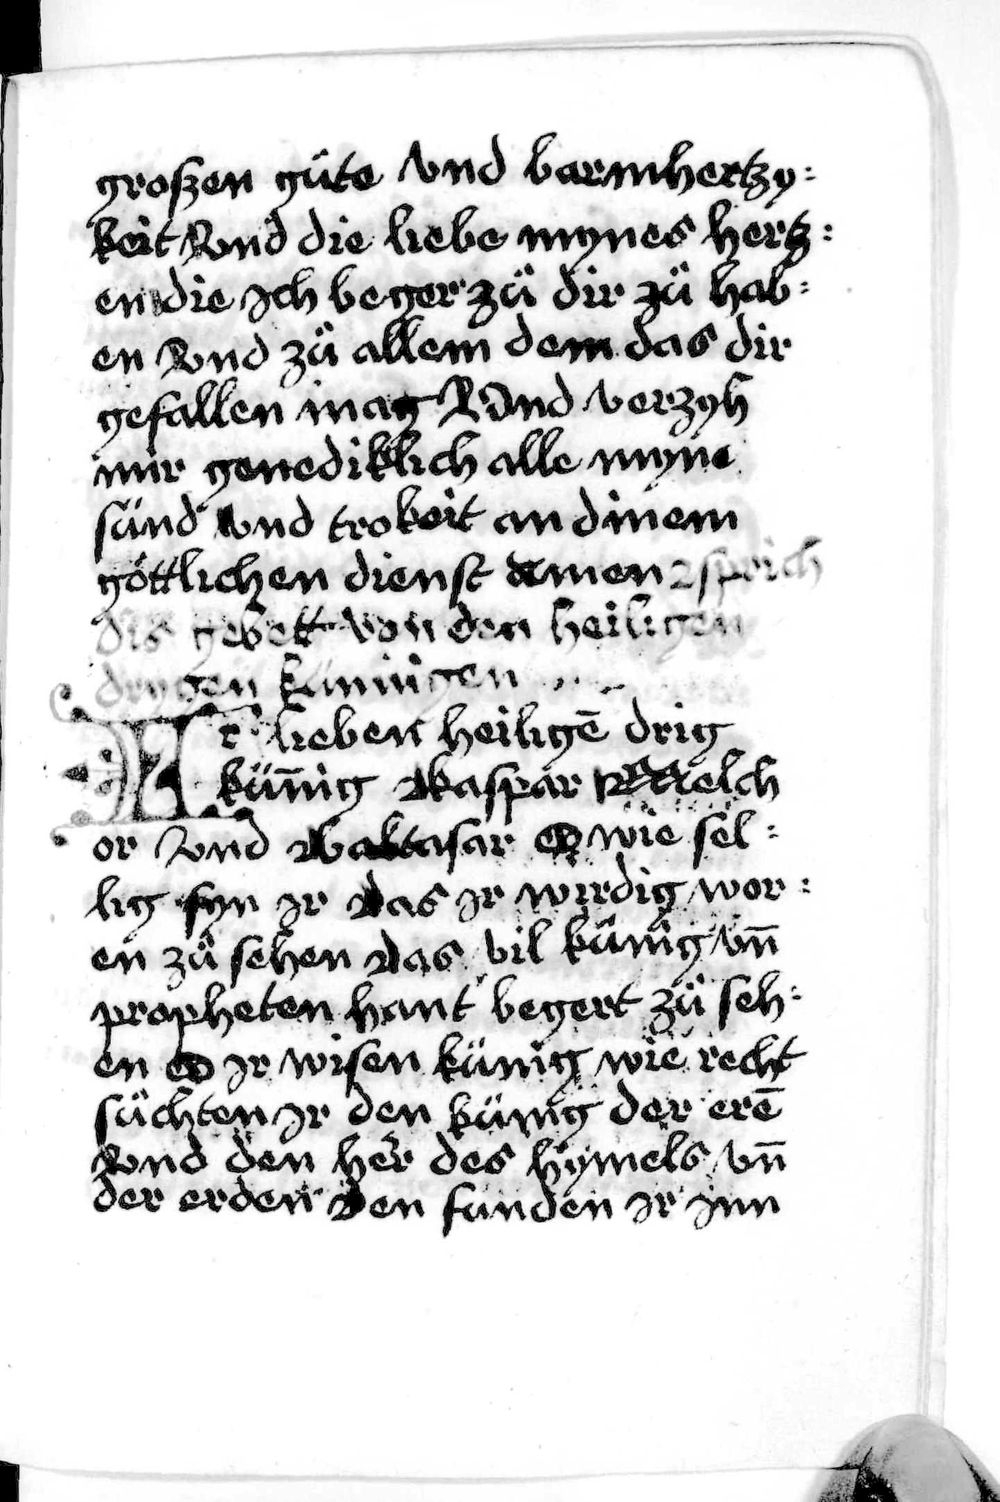 großen güte vnd barmhertzy:
keit Vnd die liebe mynes hertz:
en die Ich beger zü dir zü hab:
en Vnd zü allem dem das dir
gefallen mag Vnd verzyh
mir genediklich alle myne
sünd vnd trokeit an dinem
göttlichen dienst amen sprich
dis gebett von den heiligen
drygen küningen
Ir lieben heiligē drig
kün̄ig kaspar Melch
or Vnd baltasar O wie sel:
lig syn Ir das Ir wirdig wor:
en zü sehen das vil künig vn̄
propheten hant begert zü seh:
en O Ir wisen künig wie recht
süchten Ir den künig der erē
Vnd den her des hymels vn̄
der erden Den funden Ir Inn